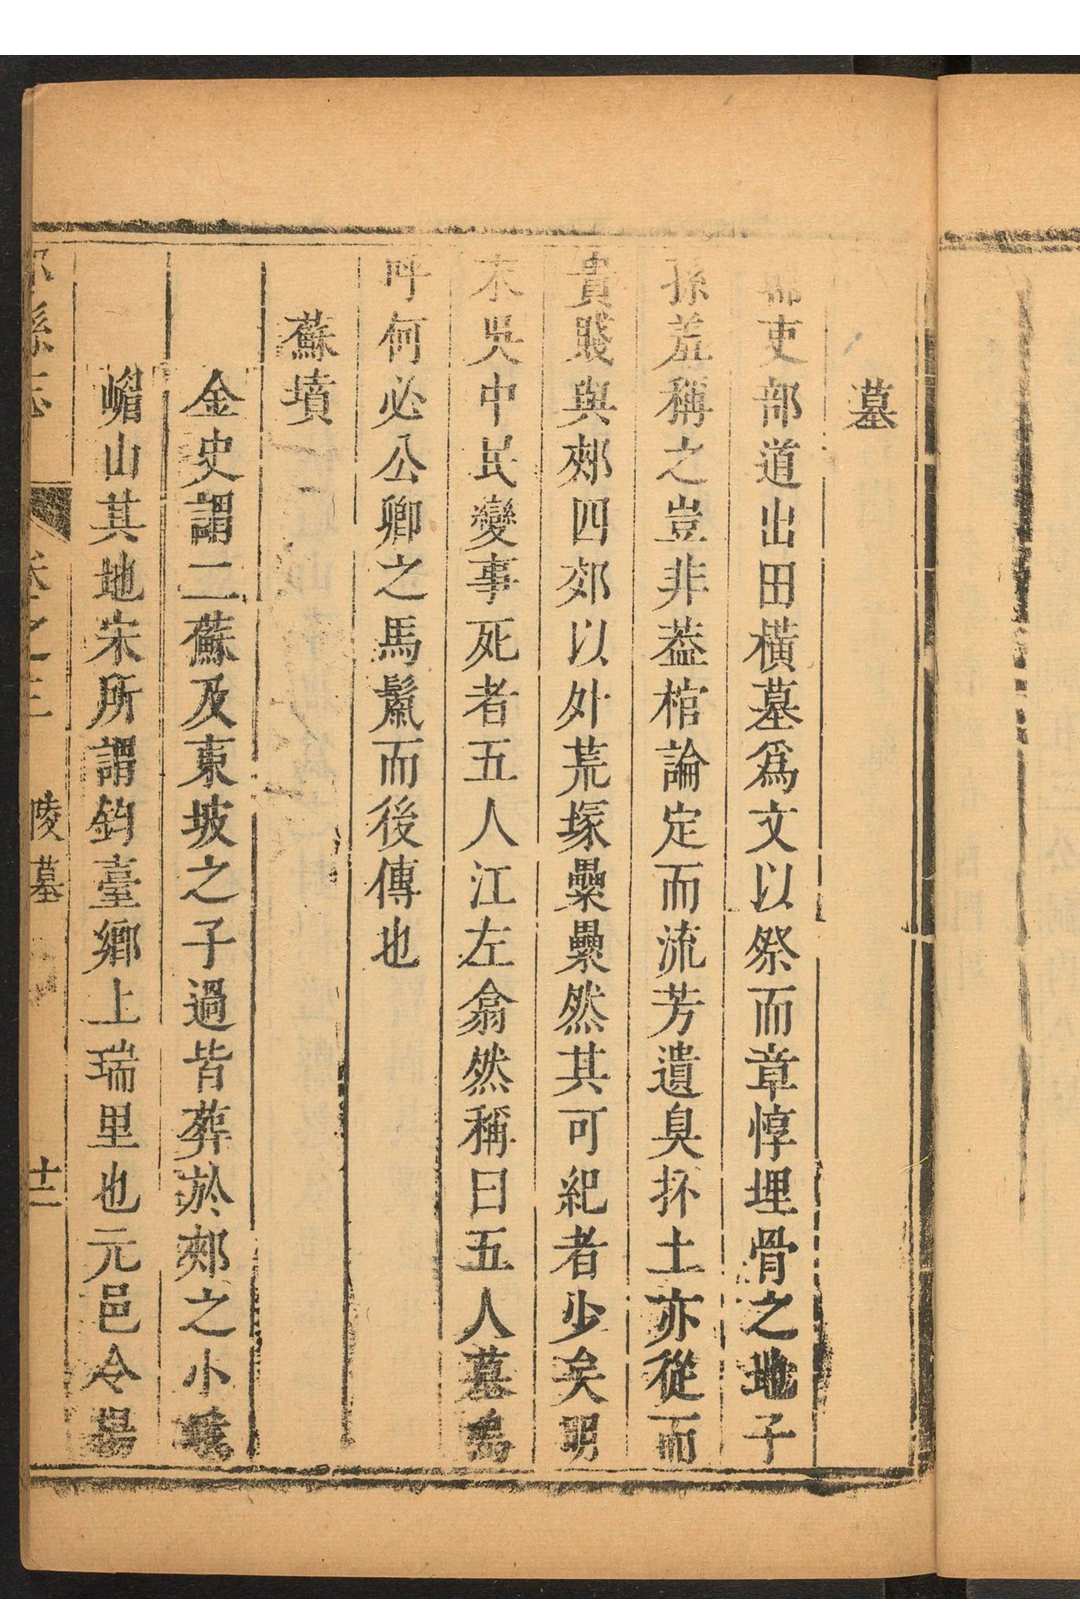 墓
韓吏部道出田橫墓爲文以祭而章惇埋骨之地子
孫羞稱之豈非葢棺論定而流芳遺臭抔土亦從而
貴賤與郟四郊以外荒塚纍纍然其可紀者少矣明
末吳中民變事死者五人江左翕然稱曰五人墓嗚
呼何必公卿之馬鬣而後傳也
蘇墳
金史謂二蘇及東坡之子過皆葬於郟之小峨
嵋山其地宋所謂鈞臺鄉上瑞里也元邑令楊
郟縣志
卷之三
陵墓
十二